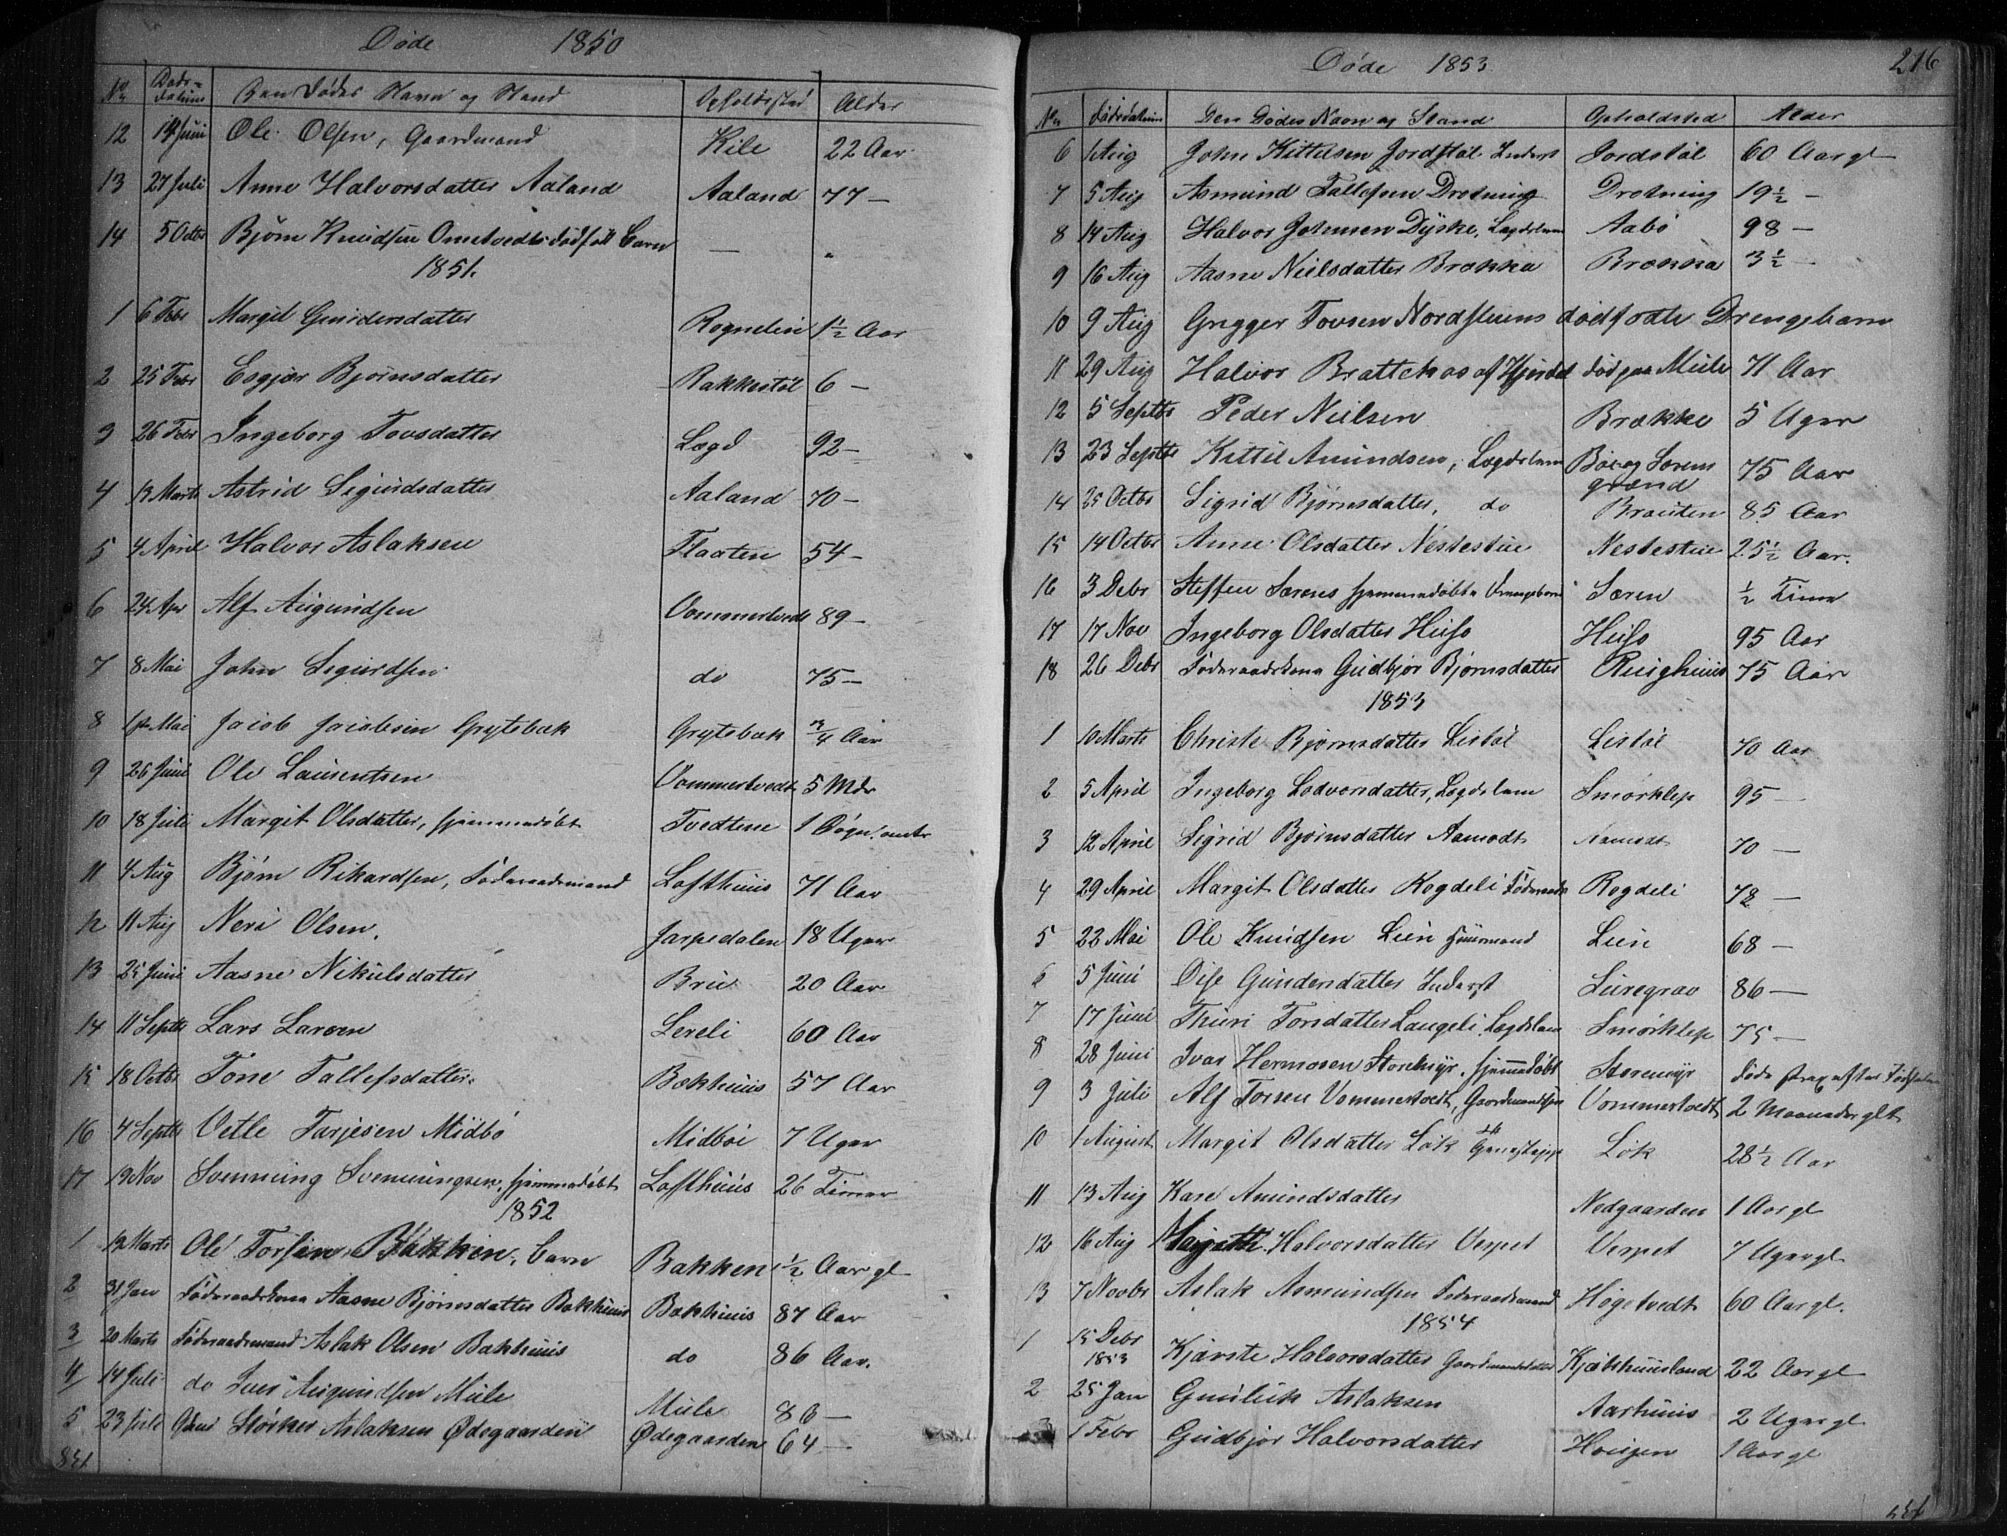 Døde 1850
No Døds-datum Den Dødes Navn og Stand Opholdssted Alder
12 14 Juni Ole Olsen, Gaardmand Kile 22 Aar
13 27 Juli Anne Halvorsdatter Aaland Aaland 77 —
14 5 Octbr Bjørn Knudsen Omtvedts dødfødt Barn — "
1851.
1 6 Febr Margit Gundersdatter Rognelien 1½ Aar
2 25 Febr Esgjær Bjørnsdatter Bakkestøl 6 —
3 26 Febr Ingeborg Tovsdatter Lægd 92 —
4 13 Marts Astrid Sigurdsdatter Aaland 70 —
5 4 April Halvor Aslaksen Flaaten 54 —
6 24 Apr Alf Augundsen Vommertvedt 89 —
7 8 Mai John Sigurdsen do 75 —
8 Mai Jacob Jacobsen Grytebæk Grytebæk ¾ Aar
9 26 Juni Ole Laurentsen Vommertvedt 5 Mdr
10 18 Juli Margit Olsdatter, hjemmedøbt Tvedtene 1 Døgn omtr
11 4 Aug Bjørn Rikardsen, Føderaadsmand Lofthuus 71 Aar
12 11 Aug Neri Olsen. Jarpedalen 18 Uger
13 25 Juni Aasne Nikulsdatter Brue 20 Aar
14 11 Septbr Lars Larsen Lereli 60 Aar
15 18 Octbr Tone Tallefsdatter. Bakhuus 57 Aar
16 4 Septbr Vetle Tarjesen Midbø Midbøe 7 Uger
17 19 Nov Svennung Svennungsen, hjemmedøbt Lofthuus 26 Timer
1852
1 12 Marts Ole Torsen Bakken, Barn Bakken ½ Aar gl
2 31 Jan Føderaadskone Aasne Bjørnsdatter Bakhuus Bakhuus 87 Aar
3 20 Marts Føderaadsmand Aslak Olsen Bakhuus do 86 Aar.
4 14 Juli do Iver Augundsen Mule Mule 86 —
5 23 Juli Størker Aslaksen Ødegaarden Ødegaarden 64 —
Døde 1853 216
No Dødsdatum Den Dødes Navn og Stand Opholdssted Alder
6 1 Aug John Kittelsen Jordstøl Inderst Jordstøl 60 Aar gl
7 5 Aug Asmund Tallefsen Dretning Dretning 19½ —
8 14 Aug Halvor Johnsen Dyske, Lægdslem Aabø 98 —
9 16 Aug Aasne Nielsdatter Brækka Brækka 3½ —
10 9 Aug Gregger Tovsen Nordsteiens dødfødte Drengebarn
11 29 Aug Halvor Brattekaas af Hjerdal død paa Mule 71 Aar
12 5 Septbr Peder Nielsen Brække 5 Uger
13 23 Septbr Kittil Amundsen, Lægdslem Bøe og Sørens grænd 75 Aar
14 25 Octbr Sigrid Bjørnsdatter, do Brauten 85 Aar
15 14 Octbr Anne Olsdatter Nestestue Nestestue 25½ Aar.
16 3 Debr Steffen Sørens hjemmedøbte Drengebarn Søren ½ Time
17 17 Nov Ingeborg Olsdatter Huso Huso 95 Aar
18 26 Debr Føderaadskone Gudbjør Bjørnsdatter Rughuus 75 Aar
1853
1 10 Marts Christe Bjørnsdatter Listøl Listøl 70 Aar
2 5 April Ingeborg Lodvorsdatter, Lægdslem Smørklep 95 —
3 12 April Sigrid Bjørnsdatter Aamodt Aamodt 70 —
4 29 April Margit Olsdatter Rogdeli Føderaads Rogdeli 78 —
5 22 Mai Ole Knudsen Lien Huusmand Lien 68 —
6 5 Juni Dise Gundersdatter Inderst Luregrav 86 —
7 17 Juni Thuri Torsdatter Langeli Lægdslem Smørklep 75 —
8 28 Juni Ivar Hermosen Storemyr, hjemmedøbt Storemyr døde strax efter Fødselen
9 3 Juli Alf Torsen Vommertvedt, Gaardmandssøn Vommertvedt 2 Maaneder glt
10 1 August Margit Olsdatter Løk Løk 28½ Aar
11 13 Aug Kare Amundsdatter Nedgaarden 1 Aar gl
12 16 Aug Halvorsdatter Verpet Verpet 7 Uger gl
13 7 Novbr Aslak Asmundsen Føderaadsmand Høgetvedt 60 Aar gl.
1854
1 15 Debr 1853 Kjærste Halvorsdatter Gaardmandsdatter Kjøkhuusland 22 Aar gl
2 25 Jan Gunleik Aslaksen Aashuus 2 Uger gl
3 1 Febr Gudbjør Halvorsdatter Haugen 1 Aar gl